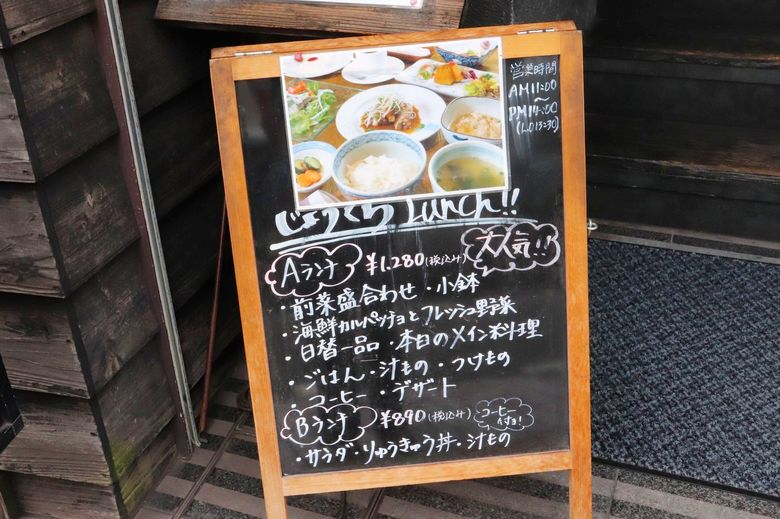 営業時間
AM11:00
〜
PM14:00
(L.O13:30)
じょうくら Lunch!!
Aランチ ¥1,280(税込み) 大人気!!
・前菜盛合わせ・小鉢
・海鮮カルパッチョとフレッシュ野菜
・日替一品・本日のメイン料理
・ごはん・汁もの・つけもの
・コーヒー・デザート
Bランチ ¥890(税込み) コーヒー付き!
・サラダ・りゅうきゅう丼・汁もの